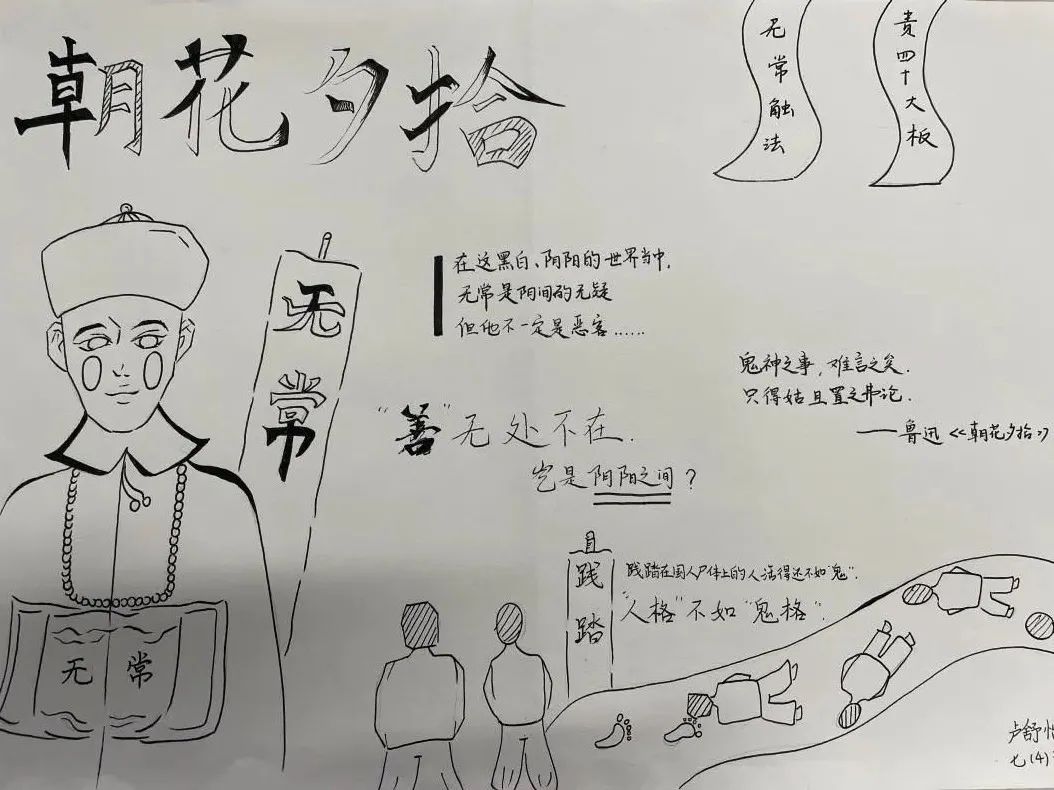 朝花夕拾
无常触法
责四十大板
无常
在这黑白、阴阳的世界当中,
无常是阴间的无疑
但他不一定是恶害……
鬼神之事,难言之矣.
只得姑且置之弗论.
——鲁迅《朝花夕拾》
"善"无处不在.
岂是阴阳之间?
践踏
践踏在国人尸体上的人活得还不如"鬼".
"人格"不如"鬼格".
无常
卢舒怡
七(4)